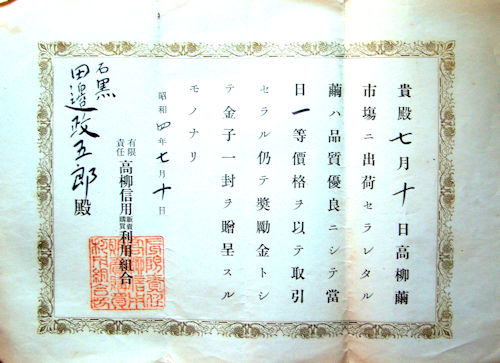 貴殿七月十日高柳繭
市場ニ出荷セラレタル
繭ハ品質優良ニシテ當
日一等價格ヲ以テ取引
セラル仍テ奬勵金トシ
テ金子一封ヲ贈呈スル
モノナリ
昭和四年七月十日
有限責任高柳信用販賣購買利用組合
石黒
田邉政五郎殿